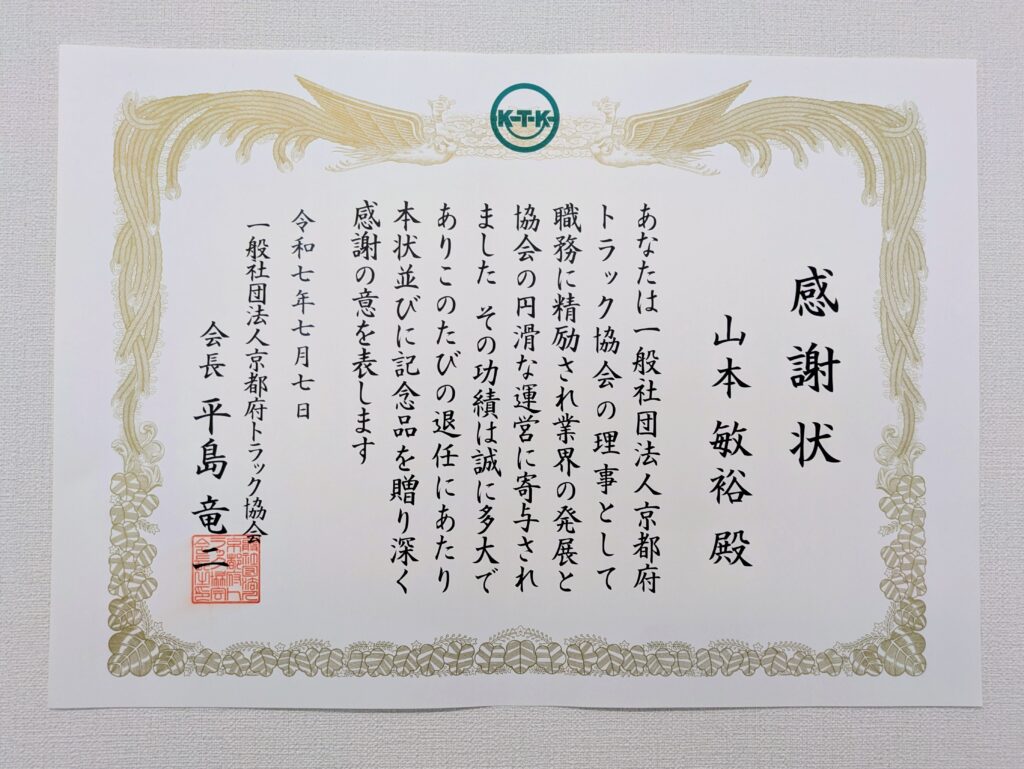 K-T-K
感謝状
山本敏裕殿
あなたは一般社団法人京都府
トラック協会の理事として
職務に精励され業界の発展と
協会の円滑な運営に寄与され
ました その功績は誠に多大で
ありこのたびの退任にあたり
本状並びに記念品を贈り深く
感謝の意を表します
令和七年七月七日
一般社団法人京都府トラック協会
会長 平島竜二